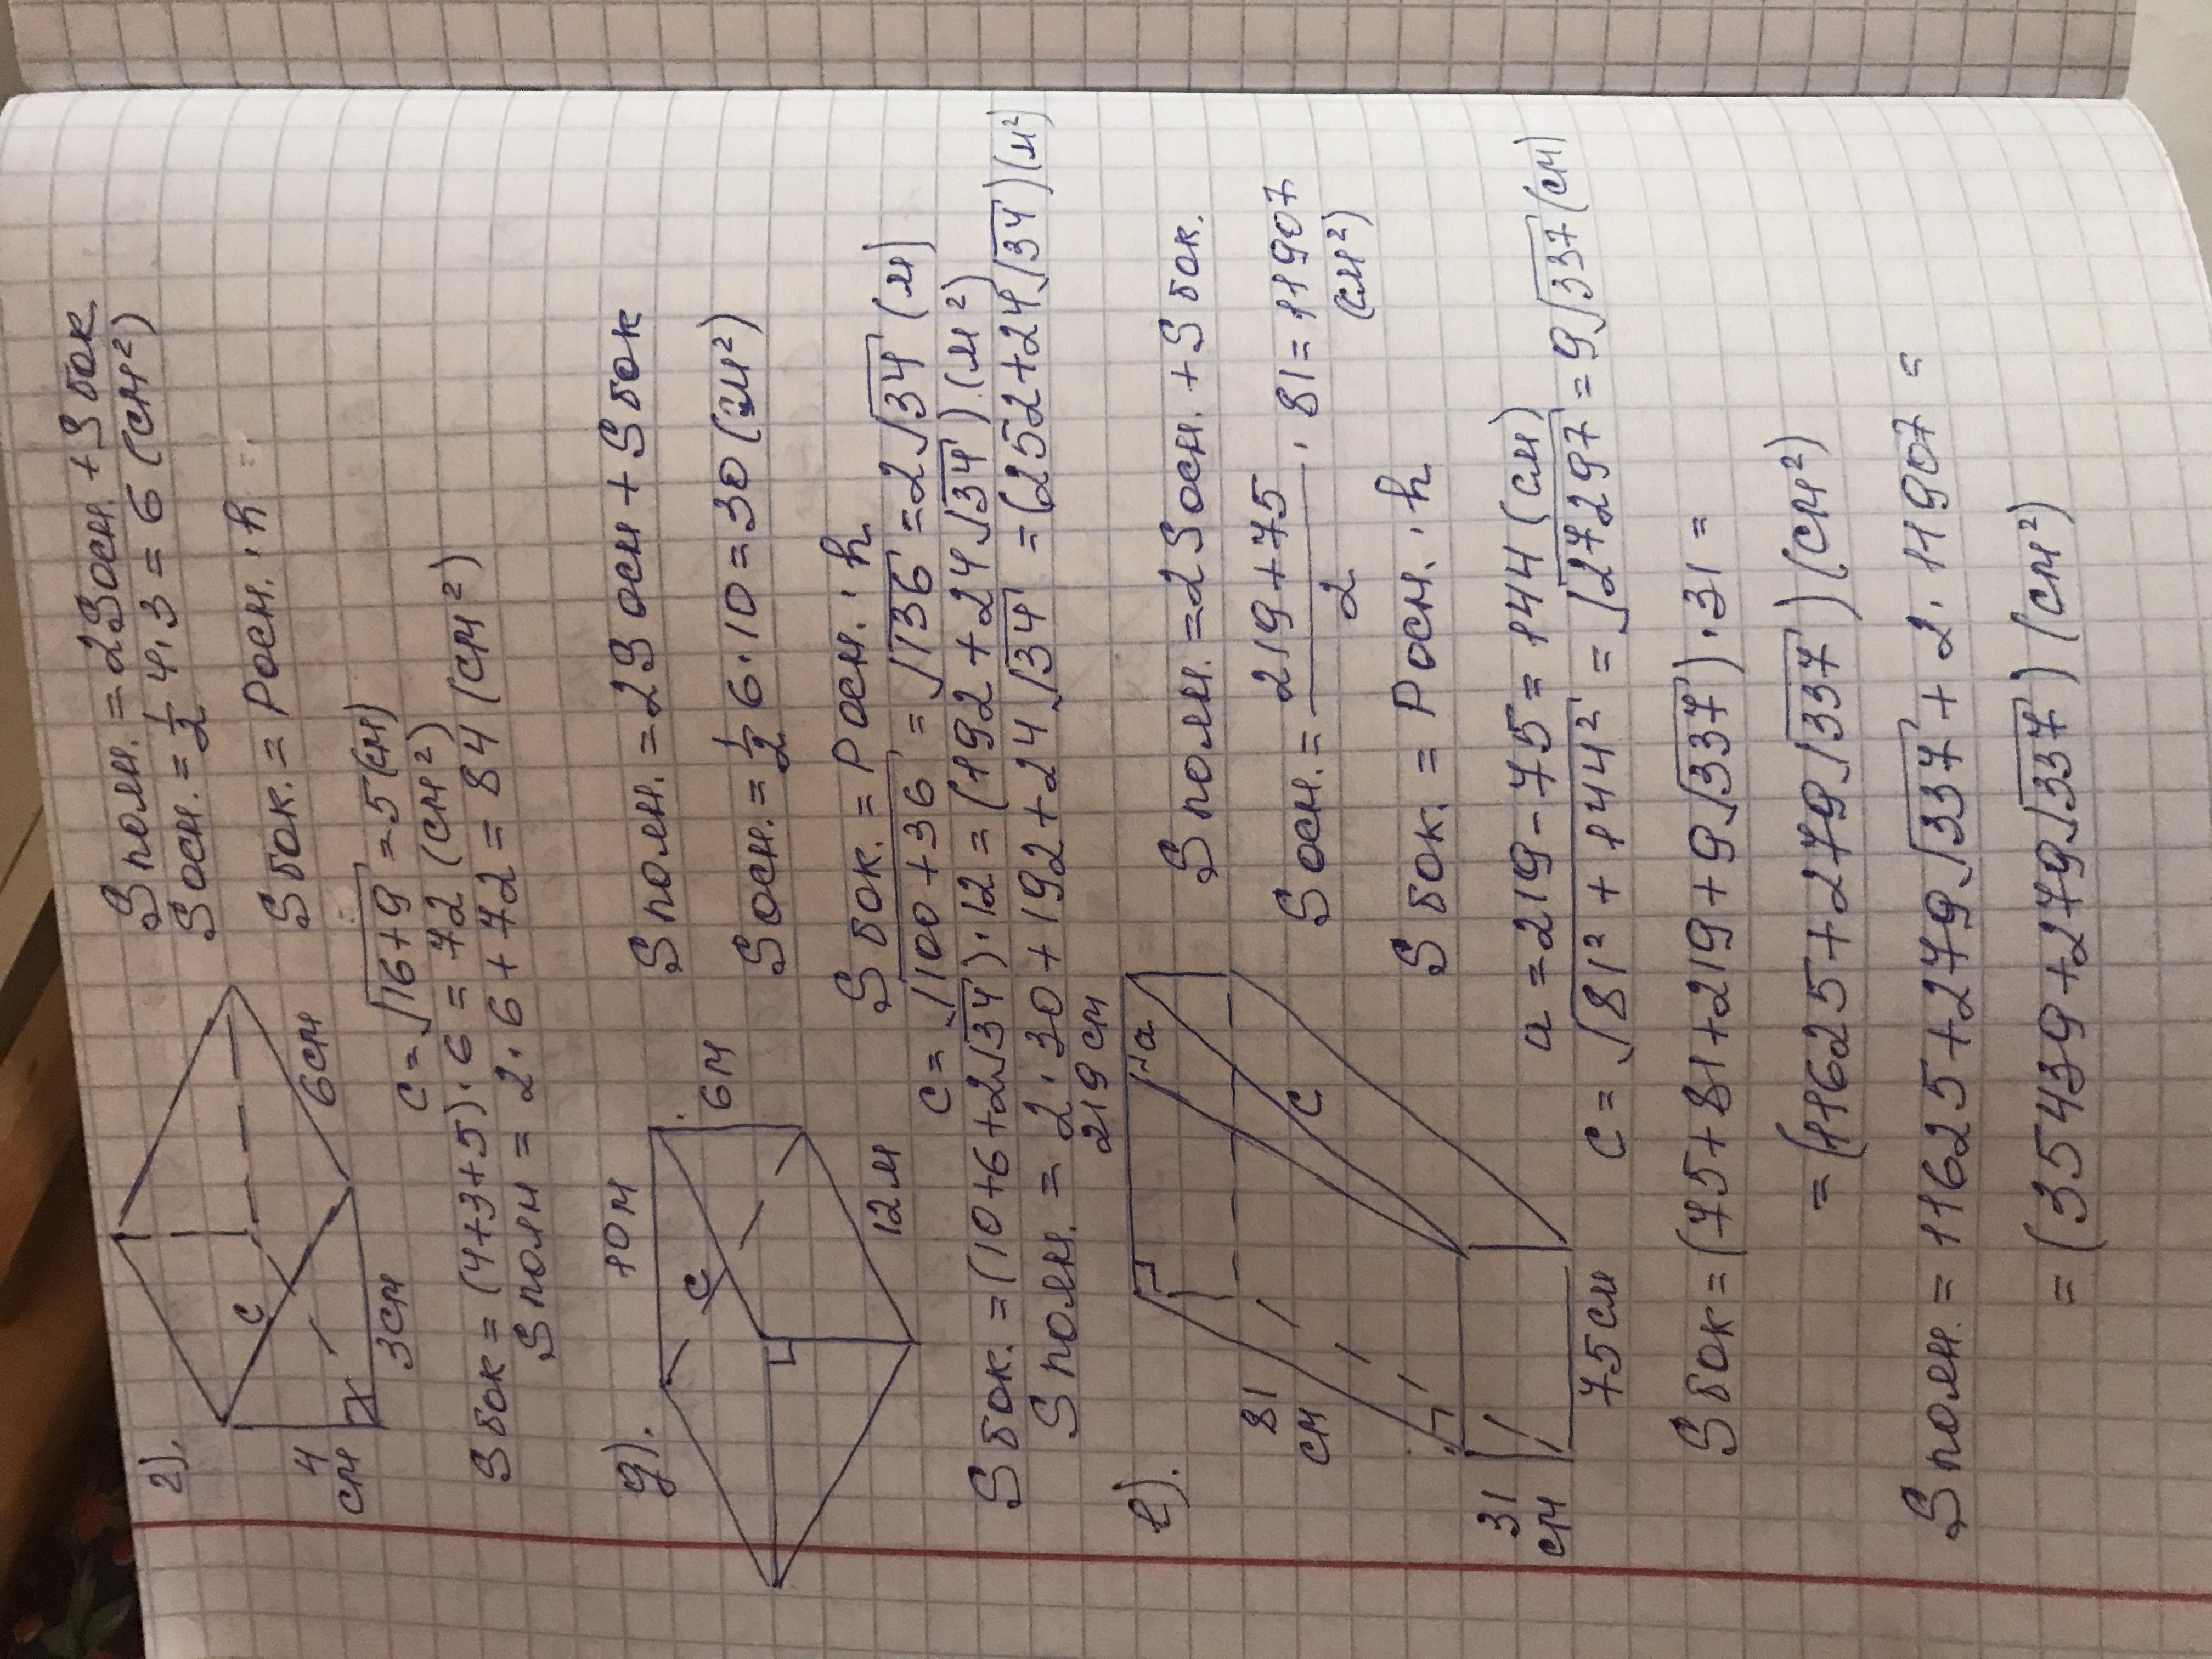 г).
Sполн. = 2Sосн + Sбок
Sосн. = 1/2 4·3 = 6 (см²)
Sбок. = Pосн. · h
c
4 см
3см
6см
c = √16+9 = 5(см)
Sбок = (4+3+5)·6 = 72 (см²)
Sполн = 2·6+72 = 84 (см²)
д).
10м
6м
c
12м
Sполн. = 2Sосн + Sбок
Sосн. = 1/2 6·10 = 30 (м²)
Sбок. = Pосн. · h
c = √100+36 = √136 = 2√34 (м)
Sбок. = (10+6+2√34)·12 = (192+24√34) (м²)
Sполн. = 2·30+192+24√34 = (252+24√34) (м²)
е).
219 см
a
81 см
c
31 см
75 см
Sполн. = 2Sосн. + Sбок.
Sосн. = 219+75/2 · 81 = 11907 (см²)
Sбок. = Pосн. · h
a = 219-75 = 144 (см)
c = √81²+144² = √27297 = 9√337 (см)
Sбок = (75+81+219+9√337)·31 =
= (11625+279√337) (см²)
Sполн. = 11625+279√337 + 2·11907 =
= (35439+279√337) (см²)